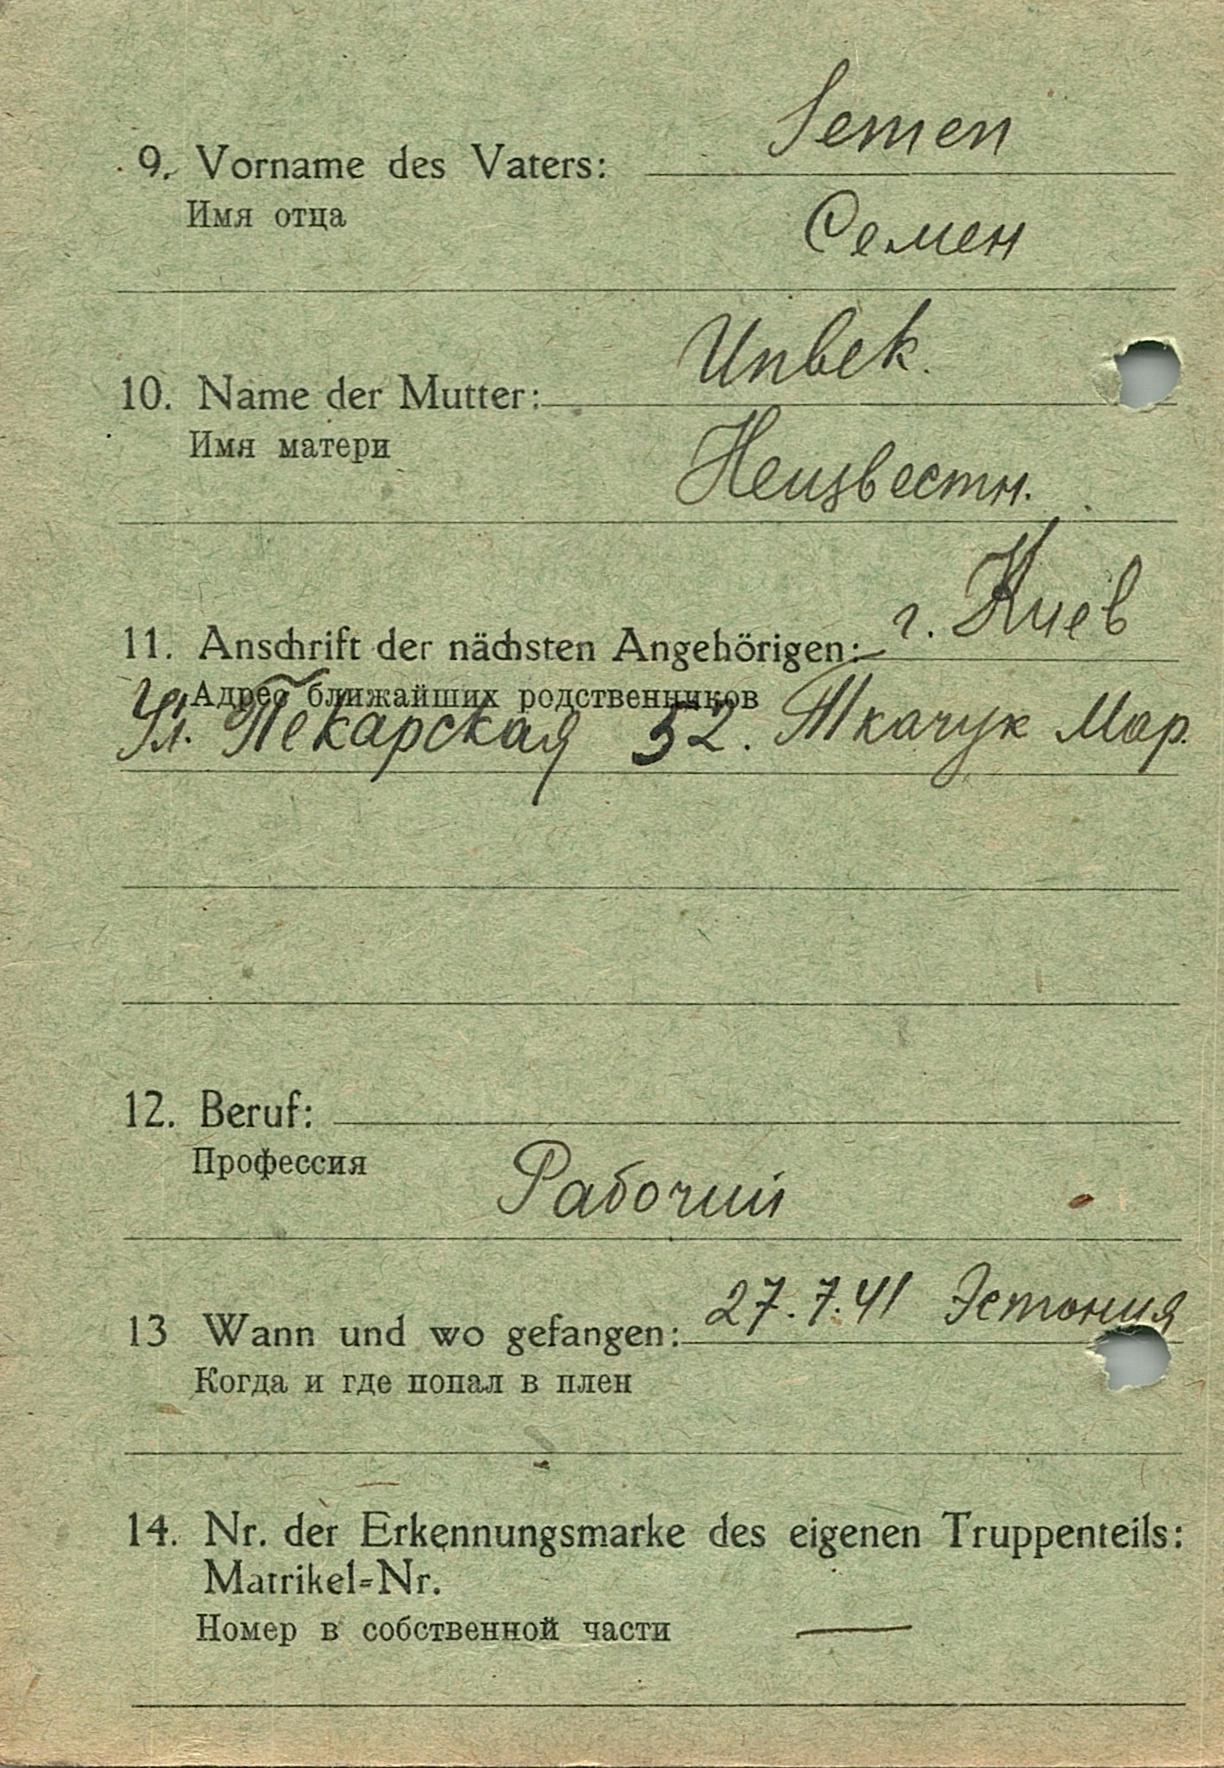 Semen
9. Vorname des Vaters:
Имя отца
Семен
Unbek.
10. Name der Mutter:
Имя матери
Неизвестн.
г. Киев
11. Anschrift der nächsten Angehörigen:
Адрес ближайших родственников
Ул. Пекарская 52. Ткачук Мар.
12. Beruf:
Профессия
Рабочий
27.7.41 Эстония
13 Wann und wo gefangen:
Когда и где попал в плен
14. Nr. der Erkennungsmarke des eigenen Truppenteils:
Matrikel-Nr.
Номер в собственной части —